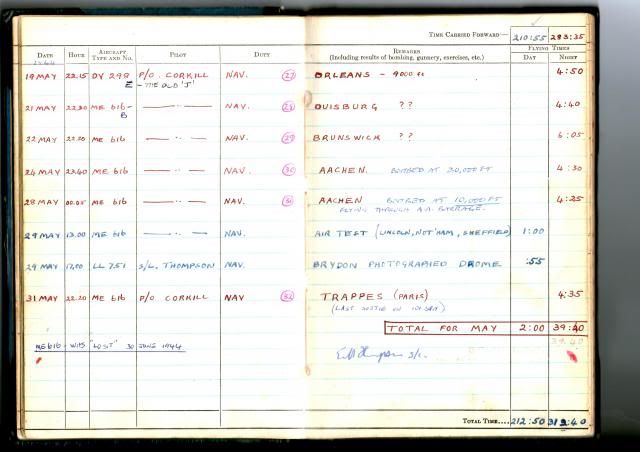 TIME CARRIED FORWARD— 210:55 283:35
DATE HOUR AIRCRAFT TYPE AND NO. PILOT DUTY REMARKS (Including results of bombing, gunnery, exercises, etc.) FLYING TIMES DAY NIGHT
1944
19 MAY 22.15 DV 298 P/O. CORKILL NAV. 27 ORLEANS - 9000 ft 4:50
E - THE OLD 'J'
21 MAY ME 616- — " — NAV. 28 DUISBURG ?? 4:40
B
22 MAY 22.20 ME 616 — " — NAV. 29 BRUNSWICK ?? 6:05
24 MAY 23.40 ME 616 — " — NAV. 30 AACHEN. BOMBED AT 20,000 FT 4:30
28 MAY 00.05 ME 616 — " — NAV. 31 AACHEN BOMBED AT 10,000 FT 4:25
FLYING THROUGH A.A. BARRAGE.
29 MAY 13.00 ME 616 — " — AIR TEST (LINCOLN, NOT'HAM, SHEFFIELD) 1:00
29 MAY 17.00 LL 751 S/L. THOMPSON NAV. BRYDON PHOTOGRAPHED DROME :55
31 MAY 22.20 ME 616 P/O CORKILL NAV 32 TRAPPES (PARIS) 4:35
(LAST SORTIE ON 101 SQN)
TOTAL FOR MAY 2:00 39:40
39.40
ME 616 - WAS "LOST" 30 JUNE 1944
S/L.
TOTAL TIME.... 212:50